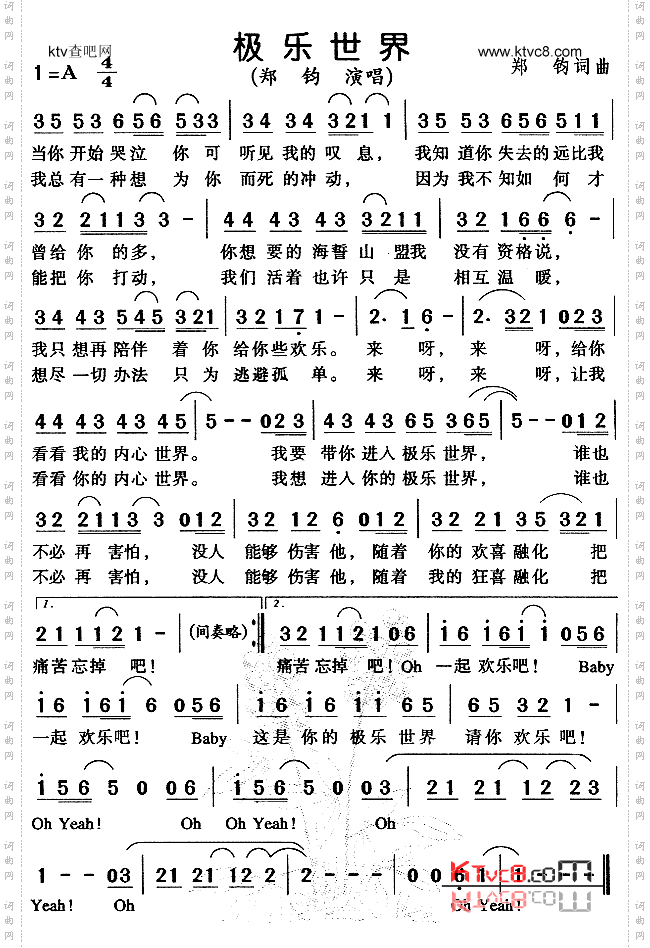 极乐世界
ktv查吧网
www.ktvc8.com
1=A 4/4
(郑 钧 演唱)
郑 钧 词 曲
35 53 656 533 | 34 34 321 1 | 35 53 656 511 |
当你 开始 哭泣 你 可 听见 我的 叹 息, 我知 道你 失去的 远比我
我总 有一 种想 为 你 而死 的冲 动, 因为 我不 知如 何 才
32 2113 3 - | 44 43 43 3211 | 32 166 6 - |
曾给 你 的 多, 你想 要的 海誓 山 盟我 没有 资格说,
能把 你 打动, 我们 活着 也许 只 是 相互 温 暖,
34 43 545 321 | 32 17 1 - | 2. 16 - | 2. 321 023 |
我只 想再 陪伴 着 你 给你 些欢 乐。 来 呀, 来 呀, 给你
想尽 一切 办法 只 为 逃避 孤 单。 来 呀, 来 呀, 让我
44 43 43 45 | 5 - - 023 | 43 43 65 365 | 5 - - 012 |
看看 我的 内心 世界。 我要 带你 进入 极乐 世界, 谁也
看看 你的 内心 世界。 我想 进入 你的 极乐 世界, 谁也
32 2113 3 012 | 32 12 6 012 | 32 21 35 321 |
不必 再 害怕, 没人 能够 伤害 他, 随着 你的 欢喜 融化 把
不必 再 害怕, 没人 能够 伤害 他, 随着 我的 狂喜 融化 把
1. 2.
21 1121 - (间奏略) :|| 32 112 1 06 | i6 i6i i 056 |
痛苦 忘掉 吧! 痛苦 忘掉 吧! Oh 一起 欢乐吧! Baby
i6 i6i 6 056 | i6 i6 56 65 | 65 32 1 - |
一起 欢乐吧! Baby 这是 你的 极乐 世界 请你 欢乐 吧!
i56 5 0 06 | i56 5 0 03 | 21 21 12 23 |
Oh Yeah! Oh Oh Yeah! Oh
1 - - 03 | 21 21 122 2 | 2 - - - | 0 0 6 1 | 1 - - - ||
Yeah! Oh Oh Yeah!
KTvc8.com
词曲网